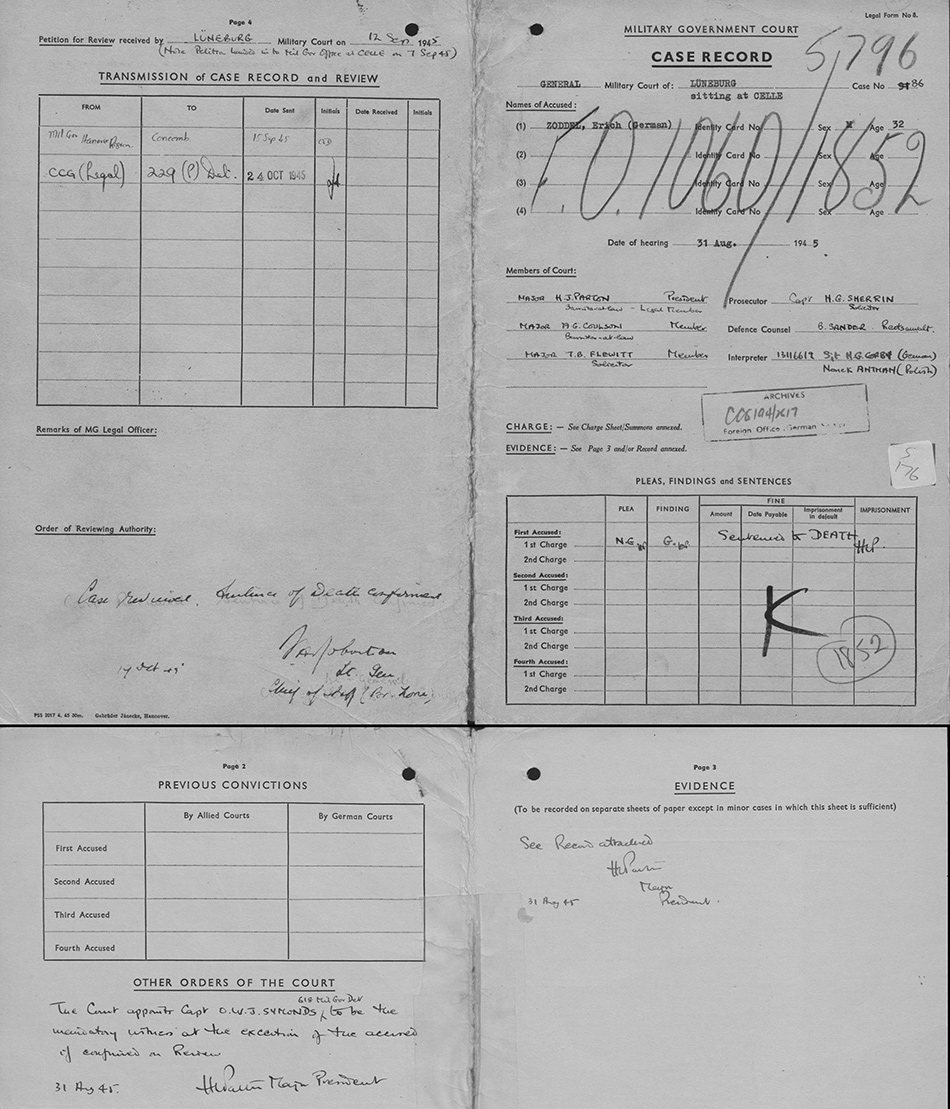 Page 4
Petition for Review received by LÜNEBURG Military Court on 12 Sep 1945
(Note Petition handed in to Mil Gov Officer at CELLE on 7 Sep 45)
TRANSMISSION of CASE RECORD and REVIEW
FROM TO Date Sent Initials Date Received Initials
Mil Gov Hanover Region Concomb 15 Sep 45
CCG (Legal) 229 (P) Det. 24 OCT 1945
Remarks of MG Legal Officer:
Order of Reviewing Authority:
Case reviewed. Sentence of Death confirmed
Lt. Gen
19 Oct 45
Chief of Staff (Br. Zone)
PSS 2017 6. 45 30m. Gebrüder Jänecke, Hannover.
Legal Form No 8.
MILITARY GOVERNMENT COURT
5,796
CASE RECORD
GENERAL Military Court of: LÜNEBURG Case No 86
sitting at CELLE
Names of Accused:
(1) ZODDEL, Erich (German) Identity Card No Sex M Age 32
(2) Identity Card No Sex Age
(3) Identity Card No Sex Age
(4) Identity Card No Sex Age
F.O. 1060/1852
Date of hearing 31 Aug. 1945
Members of Court:
MAJOR H.J. PARTON President Prosecutor Capt H.G. SHERRIN
Barrister-at-law - Legal Member Solicitor
MAJOR A.G. COULSON Member Defence Counsel B. SANDER Rechtsanwalt.
Barrister-at-law
MAJOR T.B. FLEWITT Member Interpreter 13116612 Sgt H.G. CORBY (German)
Solicitor ANTMAN (Polish)
ARCHIVES
Foreign Office: German
CHARGE: — See Charge Sheet/Summons annexed.
EVIDENCE: — See Page 3 and/or Record annexed.
S
176
PLEAS, FINDINGS and SENTENCES
PLEA FINDING FINE IMPRISONMENT
Amount Date Payable Imprisonment in default
First Accused:
1st Charge N.G. G. Sentenced to DEATH HJP.
2nd Charge
Second Accused:
1st Charge
2nd Charge
K
Third Accused:
1st Charge
2nd Charge
1852
Fourth Accused:
1st Charge
2nd Charge
Page 2
PREVIOUS CONVICTIONS
By Allied Courts By German Courts
First Accused
Second Accused
Third Accused
Fourth Accused
OTHER ORDERS OF THE COURT
618 Mil Gov Det
The Court appoints Capt O.W.J. SYMONDS, to be the
mandatory witness at the execution of the accused
if confirmed on Review
31 Aug 45. HJParton Major President
Page 3
EVIDENCE
(To be recorded on separate sheets of paper except in minor cases in which this sheet is sufficient)
See Record attached
HJParton
Major
31 Aug 45 President.